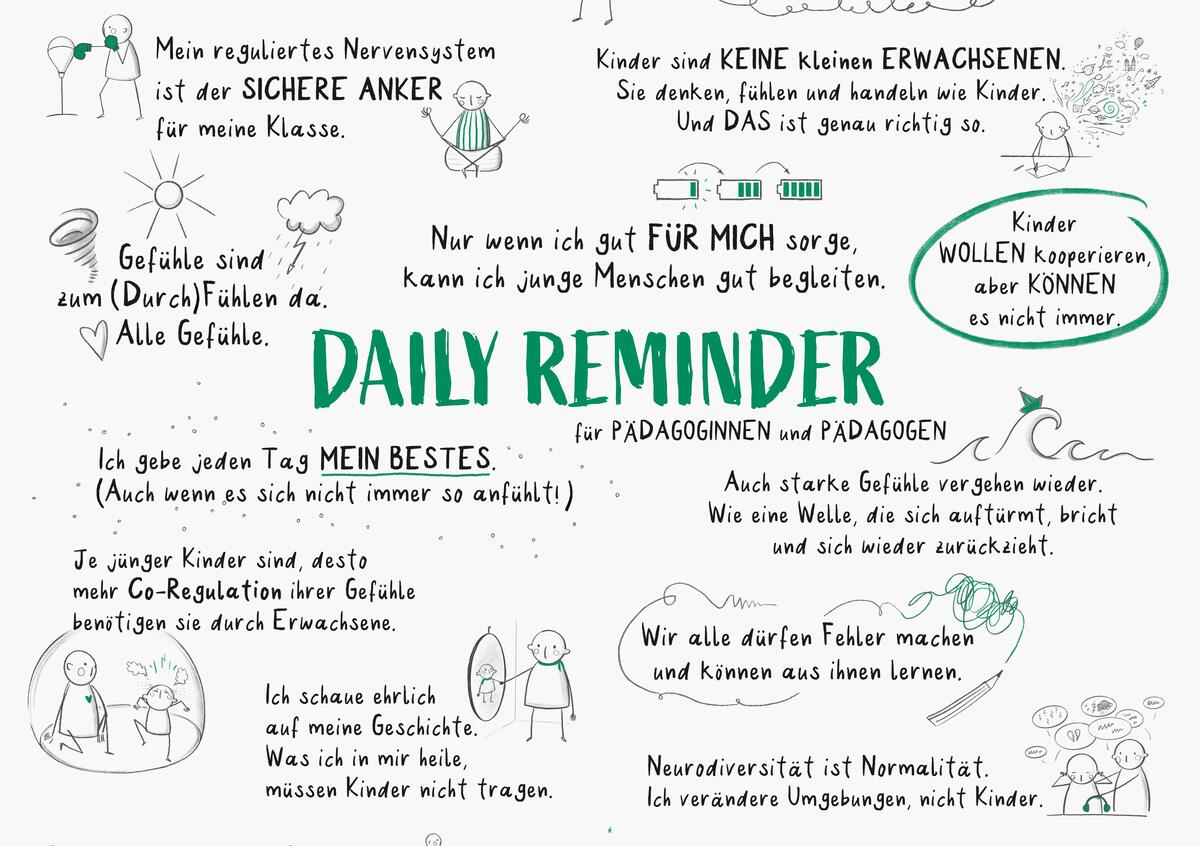 Mein reguliertes Nervensystem
ist der SICHERE ANKER
für meine Klasse.
Kinder sind KEINE kleinen ERWACHSENEN.
Sie denken, fühlen und handeln wie Kinder.
Und DAS ist genau richtig so.
Gefühle sind
zum (Durch)Fühlen da.
Alle Gefühle.
Nur wenn ich gut FÜR MICH sorge,
kann ich junge Menschen gut begleiten.
Kinder
WOLLEN kooperieren,
aber KÖNNEN
es nicht immer.
DAILY REMINDER
für PÄDAGOGINNEN und PÄDAGOGEN
Ich gebe jeden Tag MEIN BESTES.
(Auch wenn es sich nicht immer so anfühlt!)
Auch starke Gefühle vergehen wieder.
Wie eine Welle, die sich auftürmt, bricht
und sich wieder zurückzieht.
Je jünger Kinder sind, desto
mehr Co-Regulation ihrer Gefühle
benötigen sie durch Erwachsene.
Wir alle dürfen Fehler machen
und können aus ihnen lernen.
Ich schaue ehrlich
auf meine Geschichte.
Was ich in mir heile,
müssen Kinder nicht tragen.
Neurodiversität ist Normalität.
Ich verändere Umgebungen, nicht Kinder.